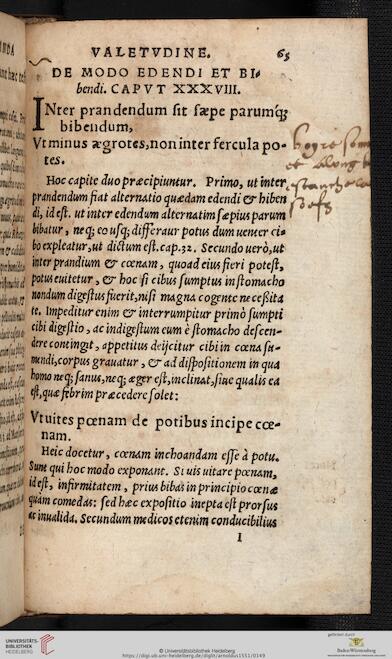 VALETVDINE. 65
DE MODO EDENDI ET BI-
bendi. CAPVT XXXVIII.
INter prandendum sit sæpe parumq́;
bibendum,
Vt minus ægrotes, non inter fercula po-
tes.
Hoc capite duo præcipiuntur. Primo, ut inter
prandendum fiat alternatio quædam edendi & biben
di, id est. ut inter edendum alternatim sæpius parum
bibatur, neq; eo usq; differatur potus dum uenter ci-
bo expleatur, ut dictum est. cap. 32. Secundo uerò, ut
inter prandium & cœnam, quoad eius fieri potest,
potus euitetur, & hoc si cibus sumptius in stomacho
nondum digestus fuerit, nisi magna cogente necessita
te. Impeditur enim & interrumpitur primò sumpti
cibi digestio, ac indigestum eum è stomacho descen-
dere contingit, appetitus deijcitur cibi in cœna su-
mendi, corpus grauatur, & ad dispositionem in qua
homo neq; sanus, neq; æger est, inclinat, siue qualis ea
est, quæ febrim præcedere solet:
Vt uites pœnam de potibus incipe cœ-
nam.
Heic docetur, cœnam inchoandam esse à potu.
Sunt qui hoc modo exponant. Si uis uitare pœnam,
id est, infirmitatem, prius bibas in principio cœnæ
quàm comedas: sed hæc expositio inepta est prorsus
ac inualida. Secundum medicos etenim conducibilius
I
UNIVERSITÄTS-
BIBLIOTHEK
HEIDELBERG
© Universitätsbibliothek Heidelberg
https://digi.ub.uni-heidelberg.de/diglit/arnoldus1551/0149
gefördert durch
Baden-Württemberg